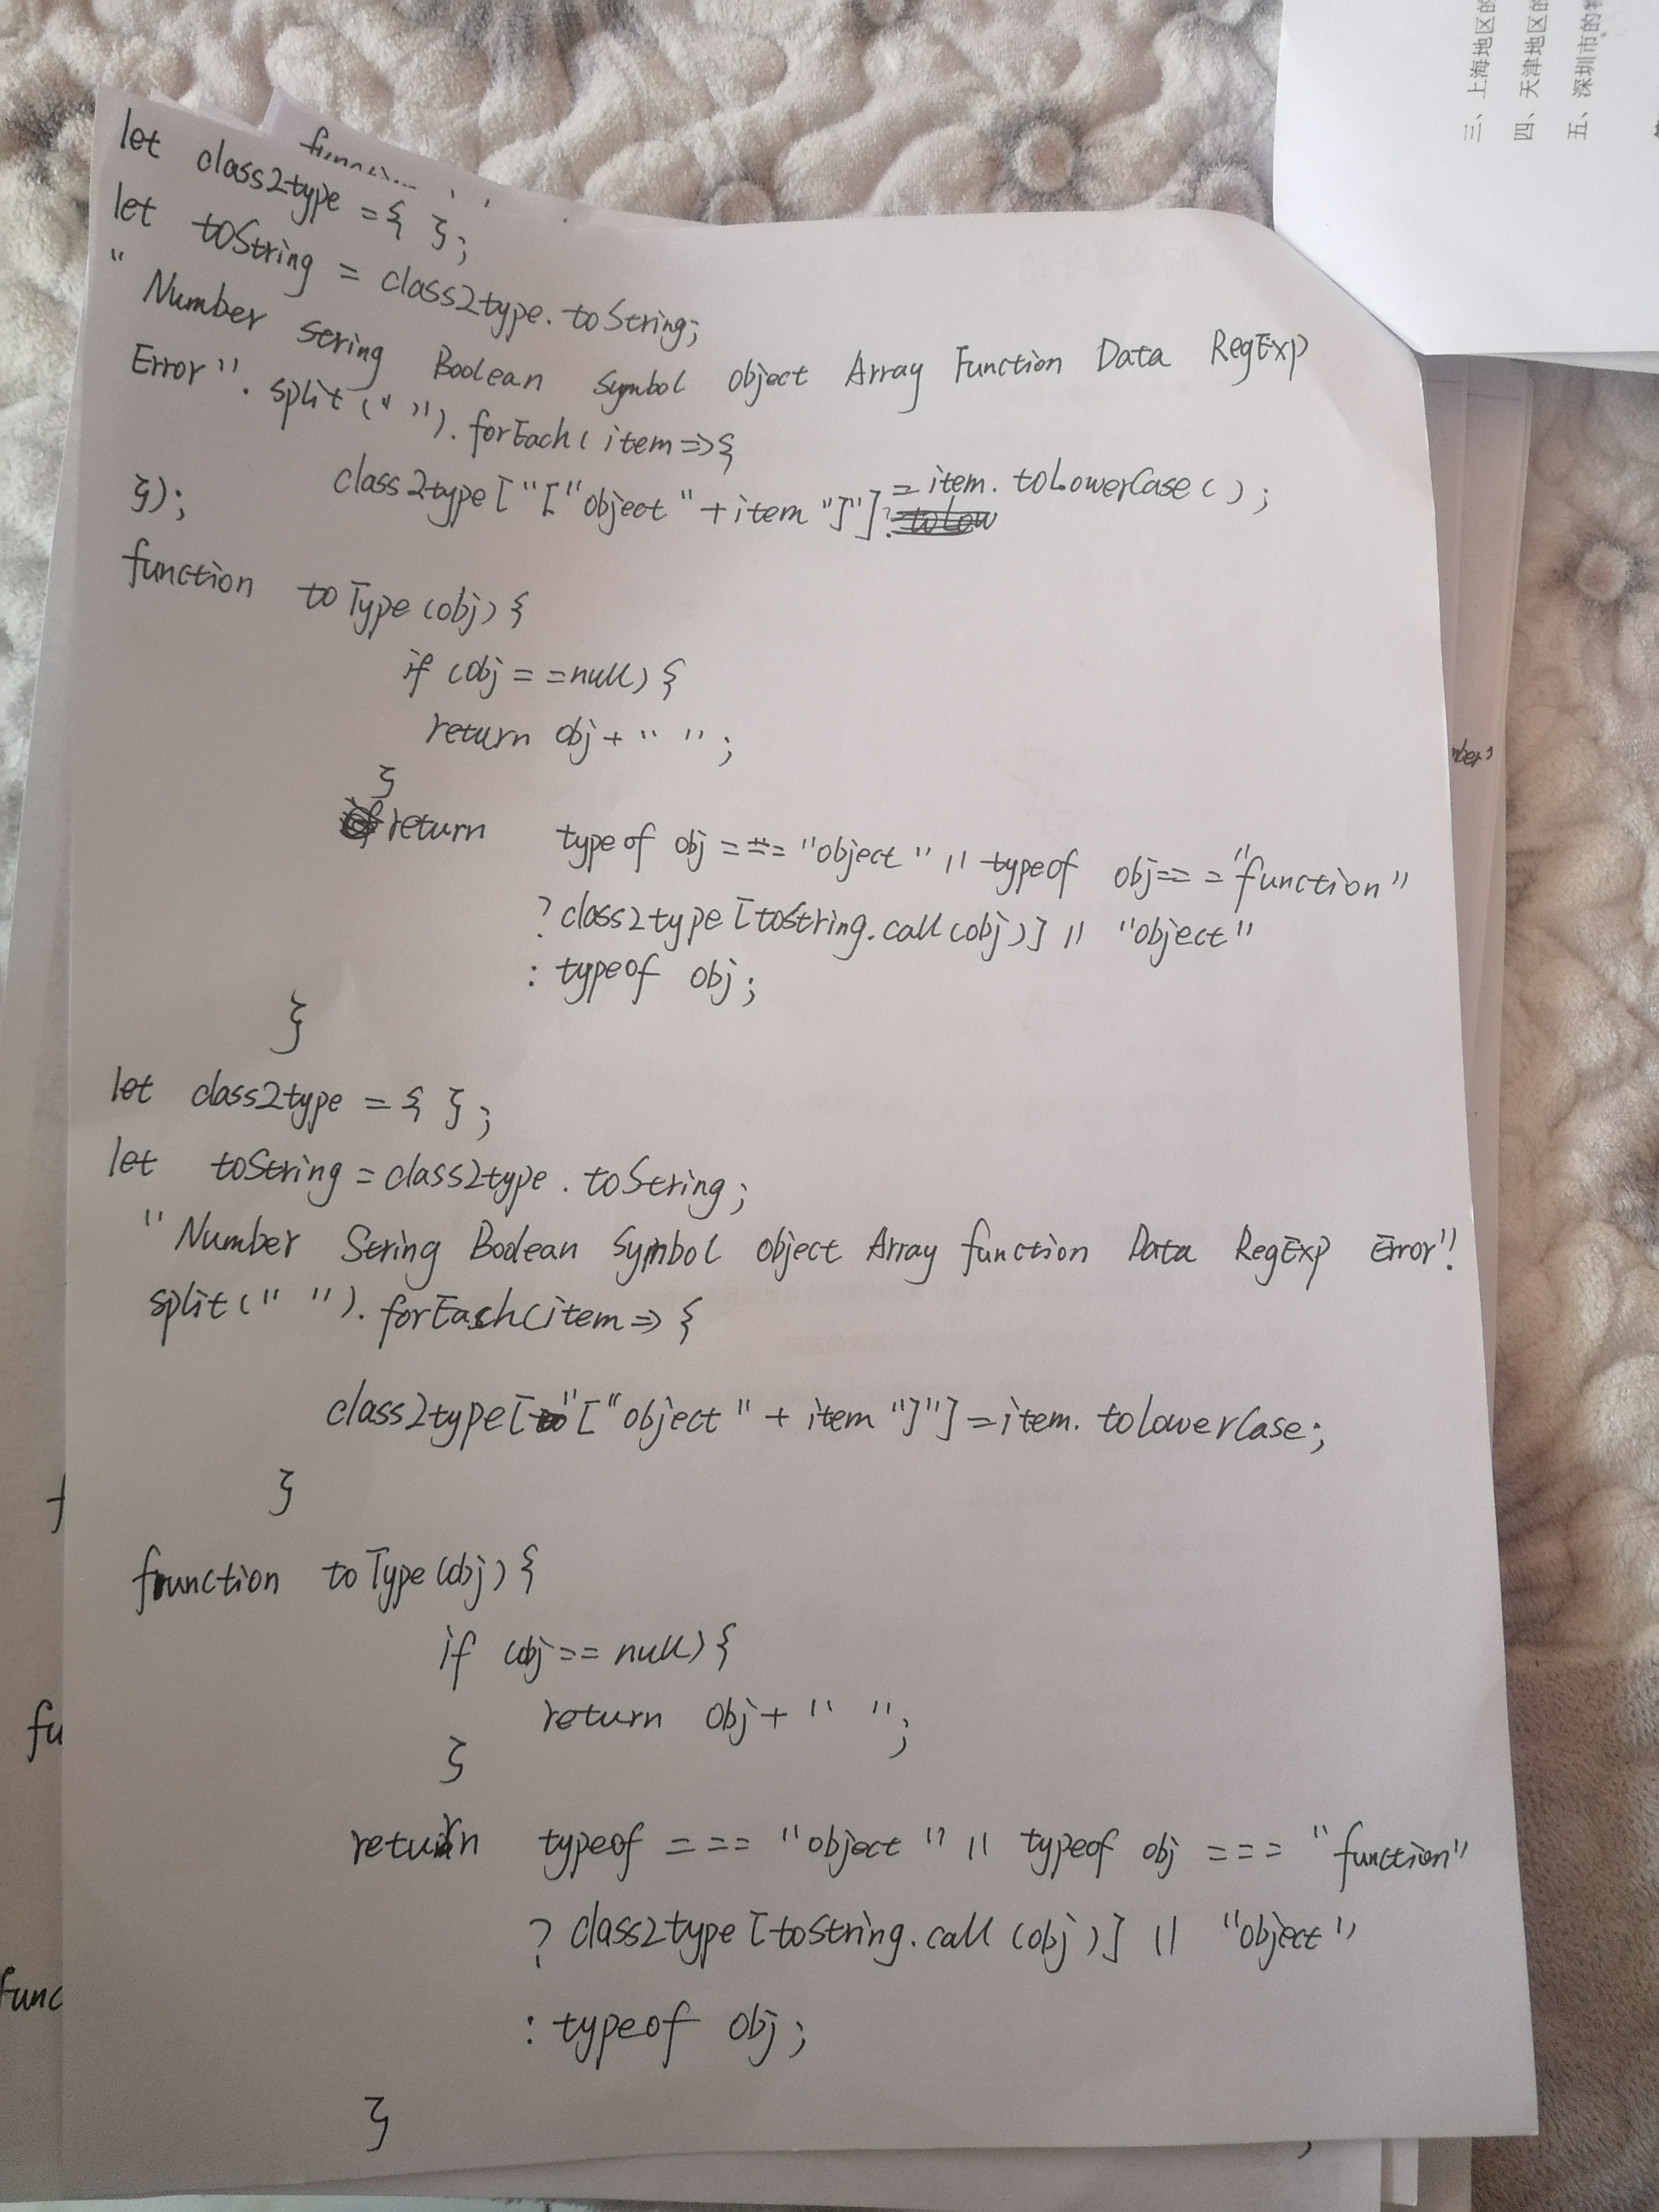 let class2type = { };
let toString = class2type.toString;
" Number String Boolean Symbol object Array Function Data RegExp
Error".split(" ").forEach(item=>{
class2type["["object"+item"]"]=item.toLowerCase();
});
function toType(obj){
if (obj==null){
return obj+" ";
}
return typeof obj==="object" || typeof obj==="function"
?class2type[toString.call(obj)] || "object"
:typeof obj;
}
let class2type={ };
let toString=class2type.toString;
"Number String Boolean Symbol object Array function Data RegExp Error".
split(" ").forEach(item=>{
class2type["["object"+item"]"]=item.toLowerCase;
}
function toType(obj){
if (obj==null){
return obj+" ";
}
return typeof==="object" || typeof obj==="function"
?class2type[toString.call(obj)] || "object"
:typeof obj;
}
三、上海地区的
四、天津地区的
五、深圳市的
fu
func